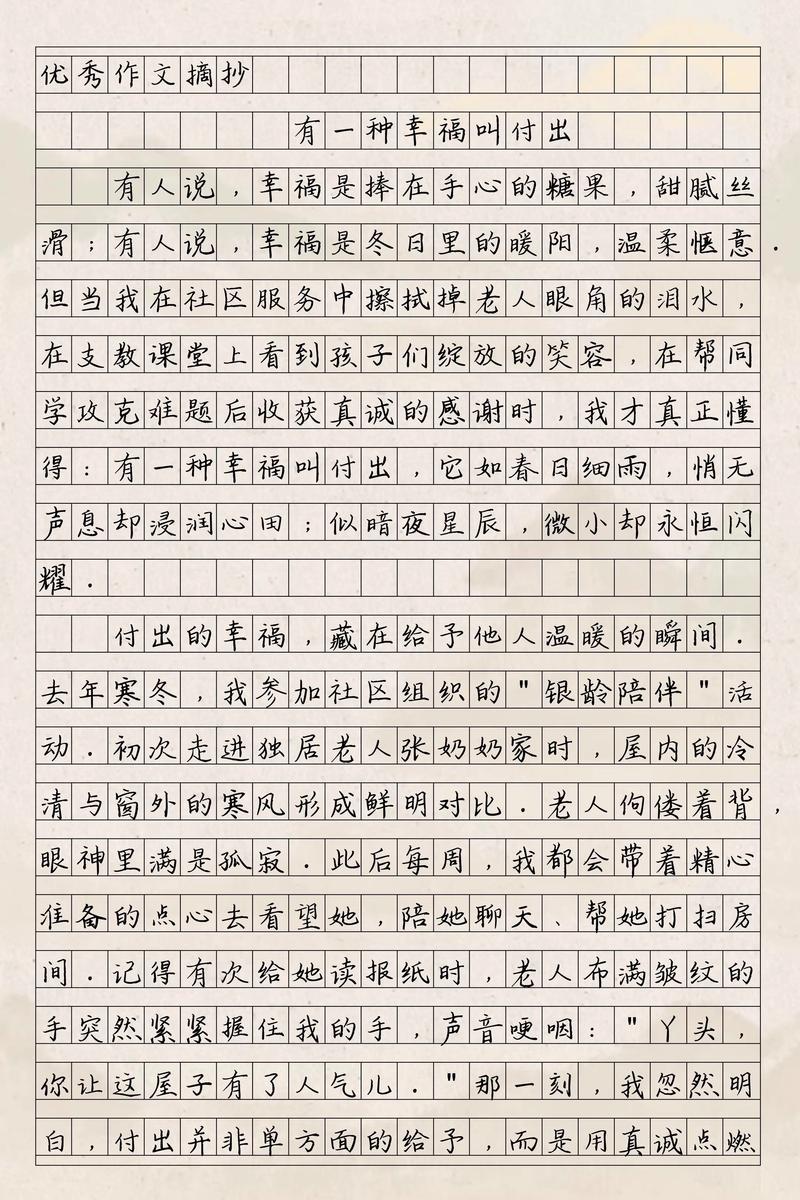 优秀作文摘抄
有一种幸福叫付出
有人说，幸福是捧在手心的糖果，甜腻丝
滑；有人说，幸福是冬日里的暖阳，温柔惬意．
但当我在社区服务中擦拭掉老人眼角的泪水，
在支教课堂上看到孩子们绽放的笑容，在帮同
学攻克难题后收获真诚的感谢时，我才真正懂
得：有一种幸福叫付出，它如春日细雨，悄无
声息却浸润心田；似暗夜星辰，微小却永恒闪
耀．
付出的幸福，藏在给予他人温暖的瞬间．
去年寒冬，我参加社区组织的"银龄陪伴"活
动．初次走进独居老人张奶奶家时，屋内的冷
清与窗外的寒风形成鲜明对比．老人佝偻着背，
眼神里满是孤寂．此后每周，我都会带着精心
准备的点心去看望她，陪她聊天、帮她打扫房
间．记得有次给她读报纸时，老人布满皱纹的
手突然紧紧握住我的手，声音哽咽："丫头，
你让这屋子有了人气儿．"那一刻，我忽然明
白，付出并非单方面的给予，而是用真诚点燃